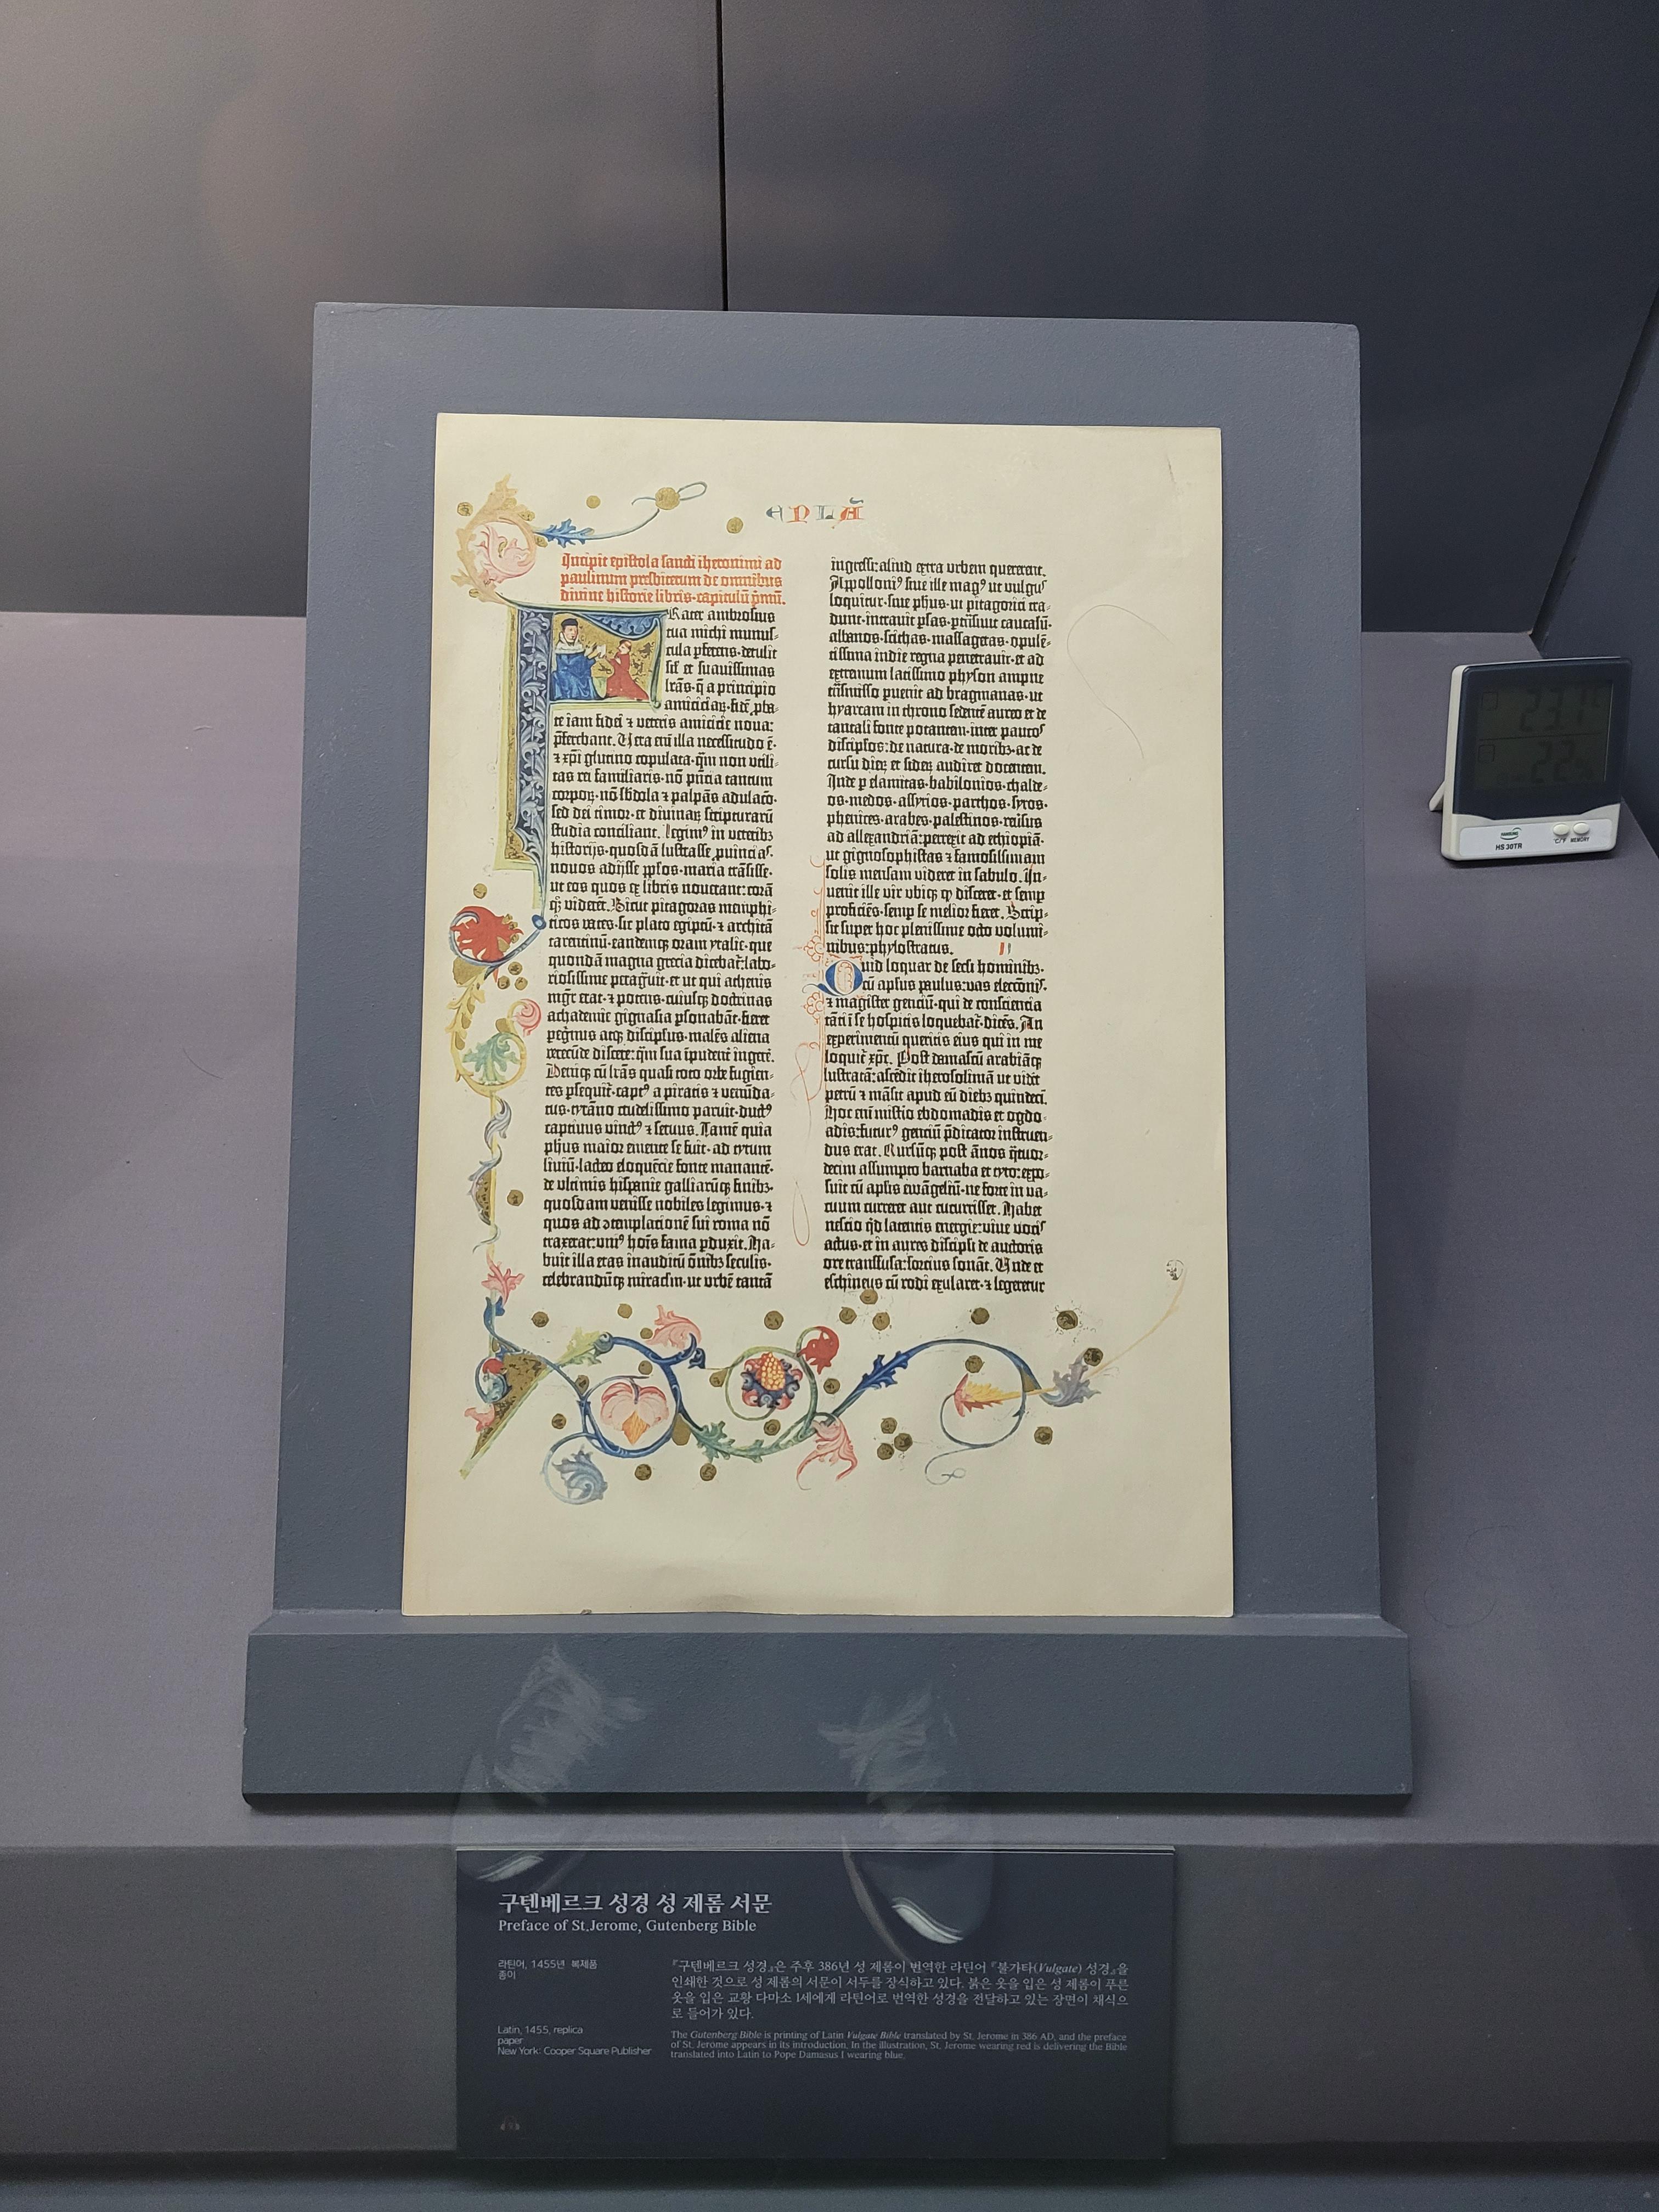 EPLA̅
Incipit epistola sancti iheronimi ad
paulinum presbiterum de omnibus
divine historie libris·capitulū p̄mū.
Rater ambrosius
tua michi munus-
cula ꝑferens·detulit
sil̕ et suavissimas
lr̄as·q̄ a principio
amiciciaꝝ·fidē ꝓba-
te iam fidei ⁊ veteris amicicie nova:
p̄ferebant. Vera em̄ illa necessitudo ē·
⁊ xp̄i glutino copulata·q̄m non utili-
tas rei familiaris·nō p̄ntia tantum
corpoꝝ·nō sb̄dola ⁊ palpās adulaco·
sed dei timor·et divinaꝝ scripturarū
studia conciliant. Legim⁹ in veteribꝫ
historijs·quosdā lustrasse ꝓvincias·
novos adijsse ppl̕os·maria trāsisse·
ut eos quos ex libris noverant: corā
qꝫ viderēt. Sicut pitagoras memphi-
ticos vates·sic plato egiptū·⁊ architā
tarentinū·eandemqꝫ oram ytalie·que
quondā magna grecia dicebat̄: labo-
riosissime peragravit·et ut qui athenis
mgr̄ erat·⁊ potens·cuiusqꝫ doctrinas
achademie gignasia ꝑsonabāt·fieret
peg̕nus atqꝫ discipl̕us·malēs aliena
verecūde discere: q̄m sua īpudent̄ ingerē.
Deniqꝫ cū lr̄as quasi toto orbe fugien-
tes ꝑsequit̄·capt⁹ a piratis ⁊ venūda-
tus·tyrāno crudelissimo paruit·duct⁹
captivus vinct⁹ ⁊ servus. Tamē quia
ph̄us maior emente se fuit·ad tytum
liviū·lacteo eloquēcie fonte manantē·
de ultimis hispanie galliarūqꝫ finibꝫ·
quosdam venisse nobiles legimus·⁊
quos ad ɔtemplacionē sui roma nō
traxerat: uni⁹ hoīs fama ꝑduxit. Ha-
buit illa etas inauditū ōnibꝫ seculis·
celebrandūqꝫ miraclm̄·ut urbē tantā
ingressi: aliud extra urbem quererent.
Appolloni⁹ sive ille mag⁹ ut vulgus
loquitur·sive ph̄us·ut pitagorici tra-
dunt·intravit ꝑsas·ꝑtrāsivit caucasū·
albanos·scithas·massagetas·opulē-
tissima indie regna penetravit·et ad
extremum latissimo physon ampne
trāsmisso pervenit ad bragmanas·ut
hyarcam in throno sedentē aureo et de
tantali fonte potantem·inter paucos
discipl̕os: de natura·de moribꝫ·ac de
cursu dieꝝ et sideꝝ audiret docentem.
Inde ꝑ elamitas·babilonios·chalde-
os·medos·assyrios·parthos·syros·
phenices·arabes·palestinos·reversus
ad allexandriā: perrexit ad ethiopiā·
ut gignosophistas ⁊ famosissimam
solis mensam videret in sabulo. In-
venit ille vir ubiqꝫ qꝫ disceret·et semꝑ
proficiēs·semꝑ se melior fieret. Scrip-
sit super hoc plenissime octo volumi-
nibus: phylostratus. II
Quid loquar de secli hominibꝫ·
cū apl̕us paulus: vas eleccōnis·
⁊ magister gentiū·qui de consciencia
tāti ī se hospitis loquebat̄·dicēs. An
experimentū queritis eius qui in me
loquit̄ xp̄c. Post damascū arabiāqꝫ
lustratā: ascēdit iherosolimā ut vidēt
petrū ⁊ māsit apud eū diebꝫ quindeci.
Hoc em̄ misterio ebdomadis et ogdo-
adis: futur⁹ gentiū p̄dicator instruen-
dus erat. Rursūqꝫ post ānos q̄tuor-
decim assumpto barnaba et tyto: expo-
suit cū apl̕is ewāgeliū·ne forte in va-
cuum curreret aut cucurrisset. Habet
nescio qd̕ latentis energie: vive vocis
actus·et in aures discipli de auctoris
ore transfusa: forcius sonāt. Unde et
eschineus cū rodi exularet·⁊ legeretur
HANSUNG
HS 30TR
°C/°F
MEMORY
구텐베르크 성경 성 제롬 서문
Preface of St.Jerome, Gutenberg Bible
라틴어, 1455년 복제품
종이
Latin, 1455, replica
paper
New York: Cooper Square Publisher
『구텐베르크 성경』은 주후 386년 성 제롬이 번역한 라틴어 『불가타(Vulgate) 성경』을
인쇄한 것으로 성 제롬의 서문이 서두를 장식하고 있다. 붉은 옷을 입은 성 제롬이 푸른
옷을 입은 교황 다마소 1세에게 라틴어로 번역한 성경을 전달하고 있는 장면이 채식으
로 들어가 있다.
The Gutenberg Bible is printing of Latin Vulgate Bible translated by St. Jerome in 386 AD, and the preface
of St. Jerome appears in its introduction. In the illustration, St. Jerome wearing red is delivering the Bible
translated into Latin to Pope Damasus I wearing blue.